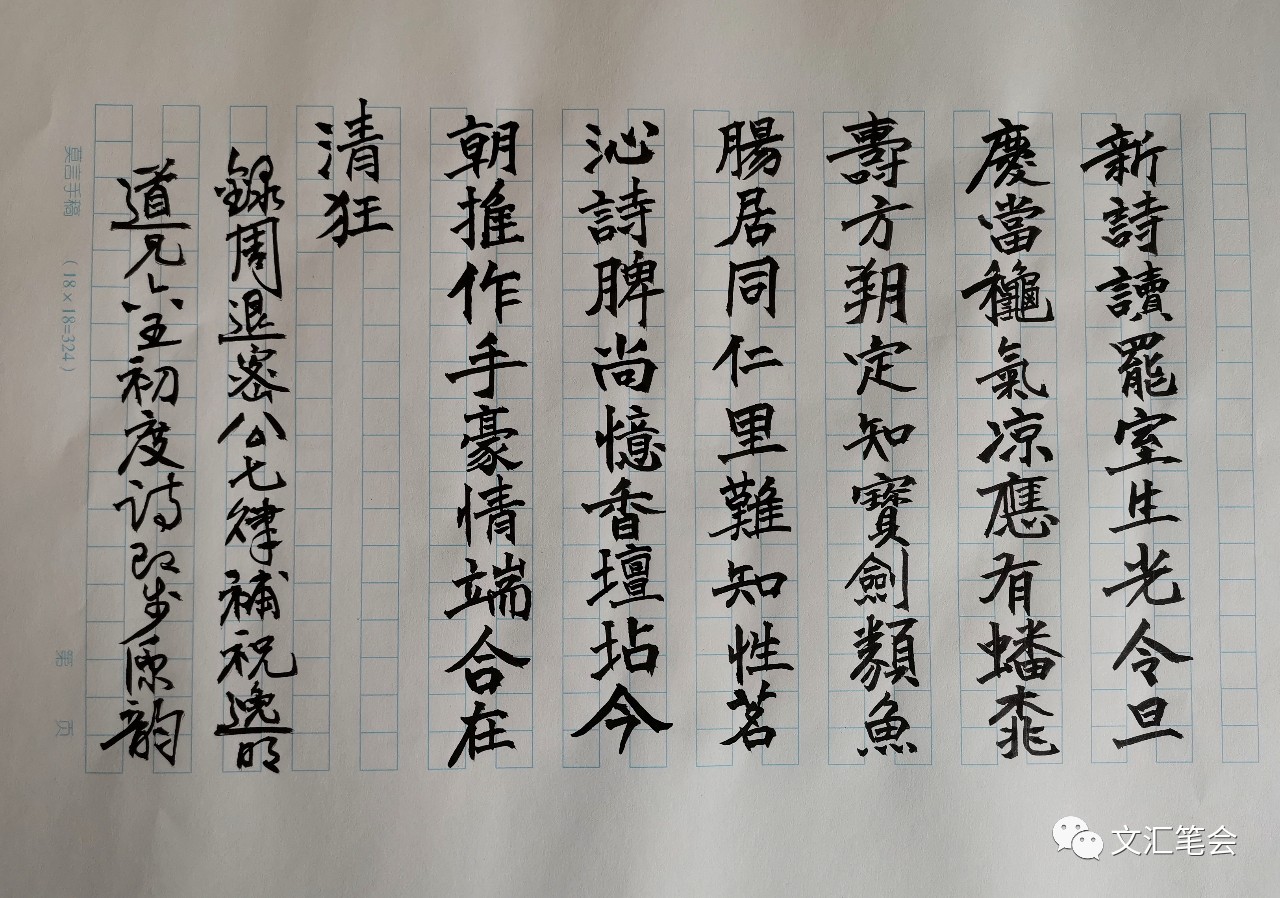 新詩讀罷室生光令旦
慶當穐氣凉應有蟠桃
壽方朔定知寶劍類魚
腸居同仁里難知性茗
沁詩脾尚憶香壇坫今
朝推作手豪情端合在
清狂
錄周退密公七律補祝逸明
道兄六五初度詩即步原韵
莫言手稿 (18×18=324) 第 页
文汇笔会